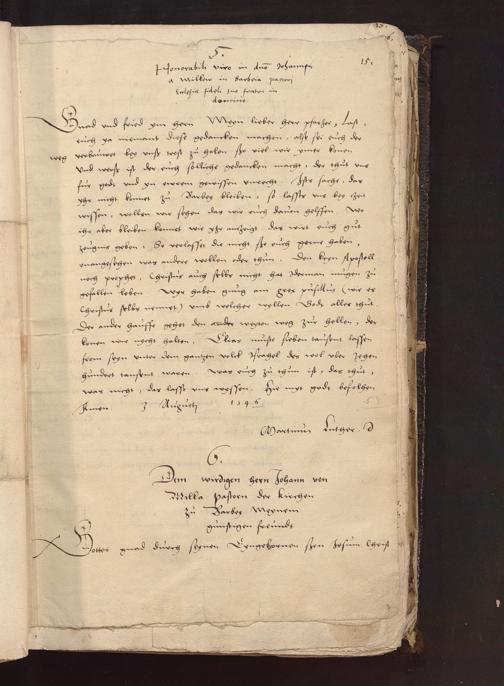 15.
5.
Honorabili viro in dno Johanni
a Millow in Barbeia pastori
Ecclesiae fideli suo fratri in
domino.
Gnad und fried ym herrn Meyn lieber herr pfarher, Last
euch ya niemant diese gedancken machen, alss sei euch der
weg verhauwet bey unss trost zu holen so viel wir ymer konen
Und werss ist der euch sölliche gedancken macht, der thut uns
fur gott und yn ewrem gewissen unrecht. Ists sache, das
yhr nicht kunnet zu Barbey bleiben, so lasst uns bey zeit
wissen, wollen wir sehen das wir euch dauon helffen. Wo
ihr aber bleiben kunnet wie yhr anzeigt das wirt euch gut
zeugnis geben, So verlasset die nicht so euch gerne haben,
unangesehen was andere wollen oder thun. Den kein Apostell
noch prophet, Christus auch selbs nicht hat Jderman mugen zu
gefallen leben. Wir haben gnug am grex pusillus (wie es
Christus selbs nennet) umb welcher willen Gott alles thut
Der ander hauffe gehet den weg zur hellen, des
konen wir nicht halten. Elias muste sieben tausent lassen
from seyn unter dem gantzen volck Israhel des viel ober zehen
hundert tausent waren. Was euch zu thun ist, das thut,
was nicht, das lasst uns wissen. Hie mit gott befolhen
Amen. 3 Augusti 1545
Martinus Luther. D
6.
Dem wirdigen hern Johann von
Milla pastorn der kirchen
zu Barbey meynem
gunstigen freundt
Gottes gnad durch seynen Eyngebornen son Jesum Christ